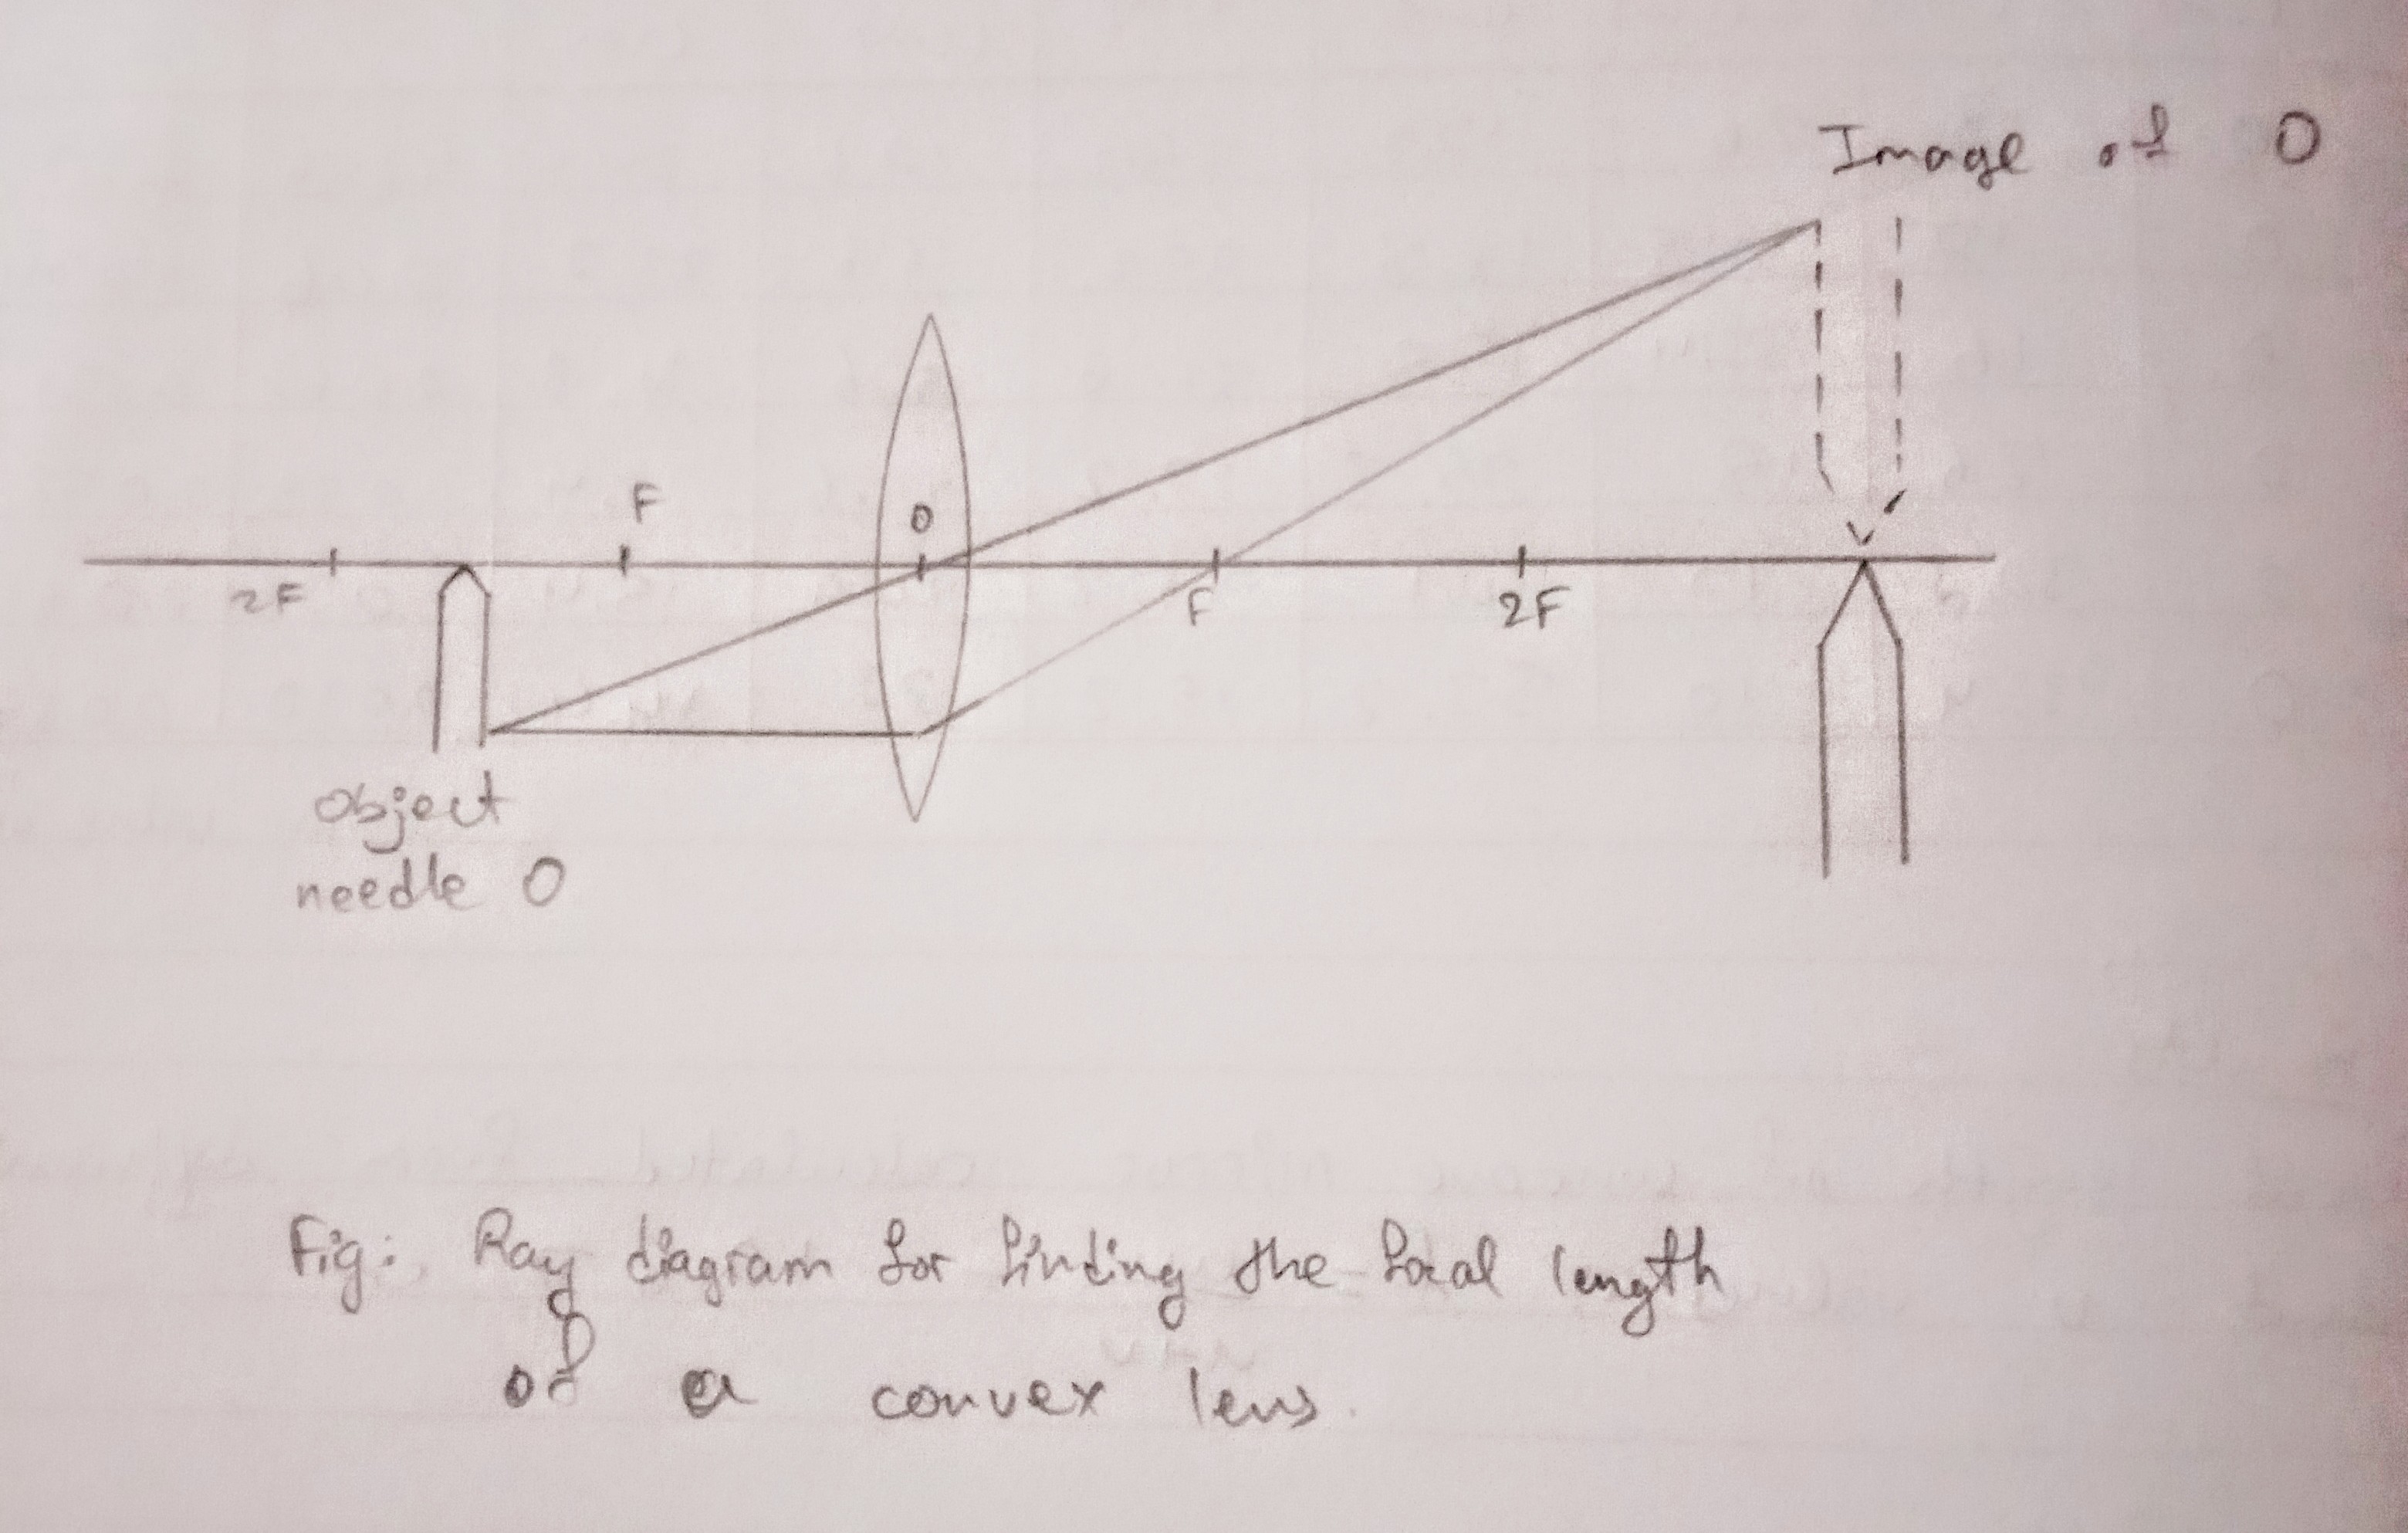 Image of O
F
O
2F
F
2F
object
needle O
Fig: Ray diagram for finding the focal length
of a convex lens.